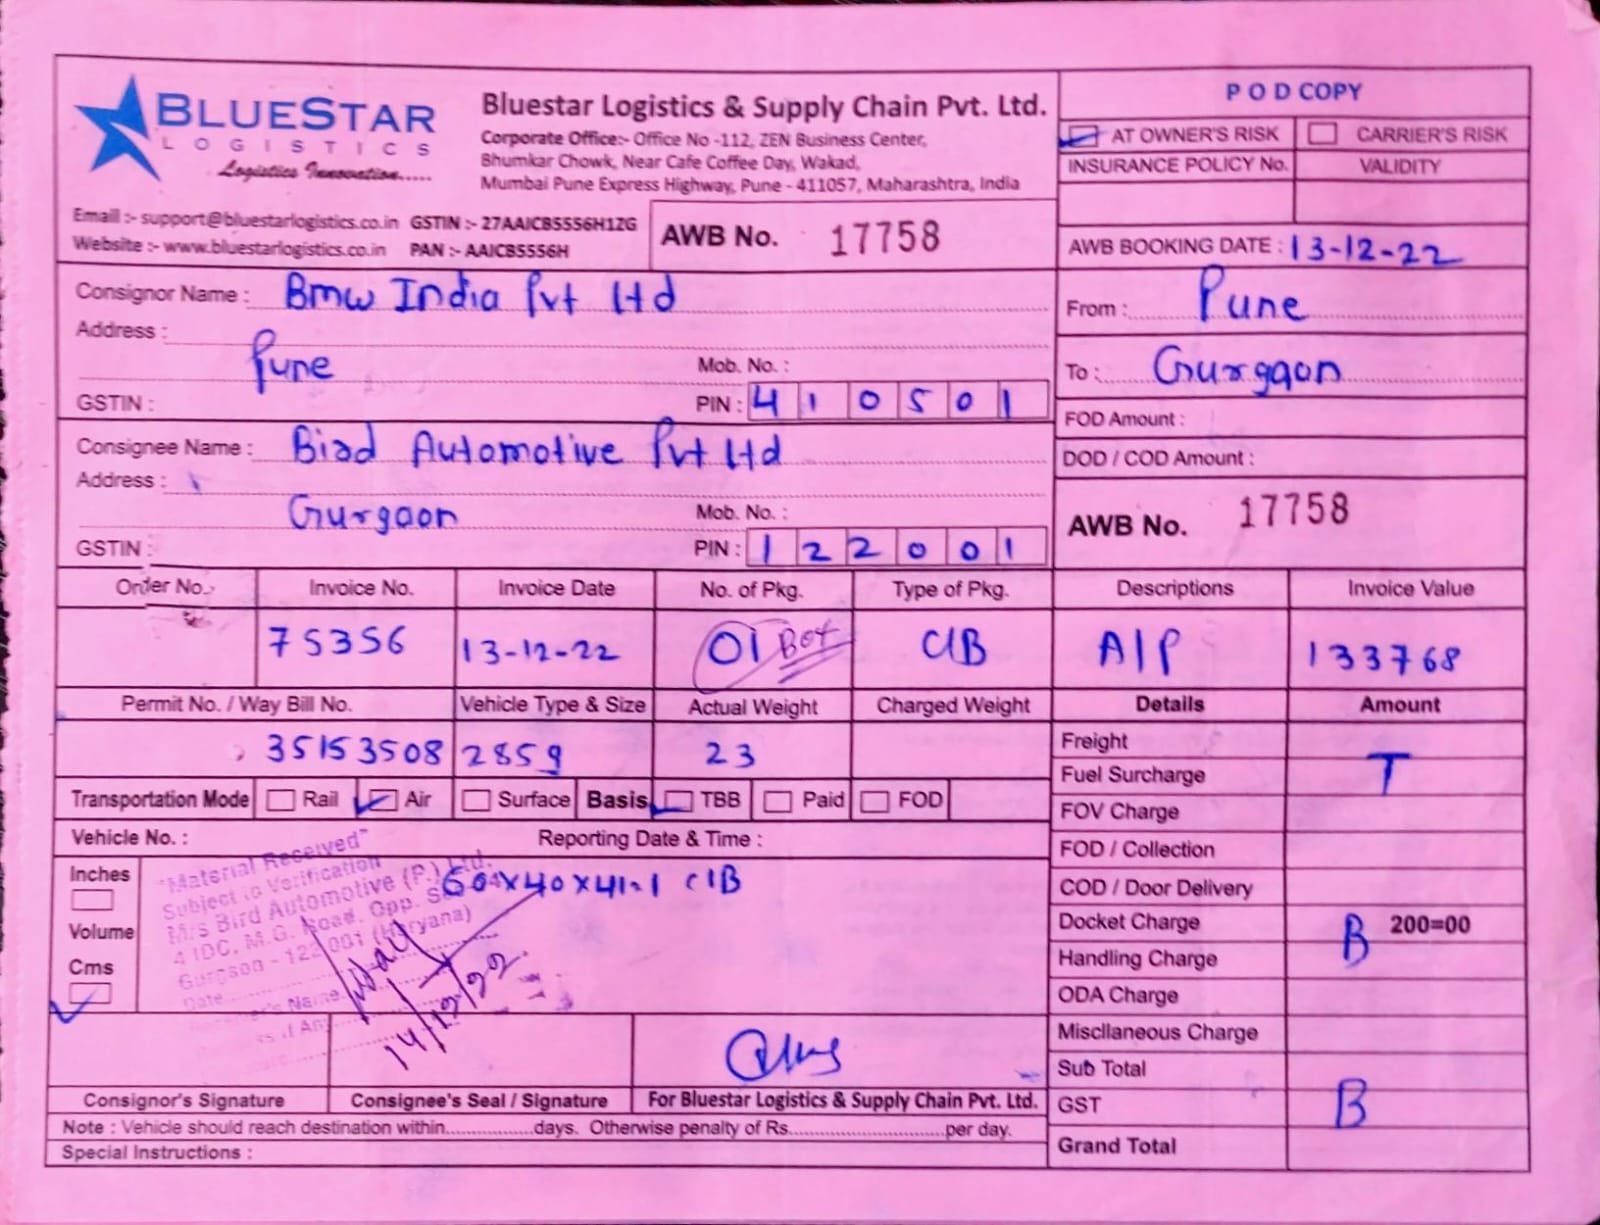 BLUESTAR
LOGISTICS
Logistics Innovation.....
Bluestar Logistics & Supply Chain Pvt. Ltd.
Corporate Office:- Office No -112, ZEN Business Center,
Bhumkar Chowk, Near Cafe Coffee Day, Wakad,
Mumbai Pune Express Highway, Pune - 411057, Maharashtra, India
Email :- support@bluestarlogistics.co.in GSTIN :- 27AAICB5556H1ZG
Website :- www.bluestarlogistics.co.in PAN :- AAICB5556H
AWB No. 17758
POD COPY
AT OWNER'S RISK CARRIER'S RISK
INSURANCE POLICY No. VALIDITY
AWB BOOKING DATE : 13-12-22
Consignor Name : Bmw India Pvt Ltd
Address :
Pune
Mob. No. :
GSTIN : PIN : 410501
From : Pune
To : Gurgaon
FOD Amount :
DOD / COD Amount :
Consignee Name : Bird Automotive Pvt Ltd
Address :
Gurgaon
Mob. No. :
GSTIN : PIN : 122001
AWB No. 17758
Order No. Invoice No. Invoice Date No. of Pkg. Type of Pkg. Descriptions Invoice Value
75356 13-12-22 01 Box C/B A/P 133768
Permit No. / Way Bill No. Vehicle Type & Size Actual Weight Charged Weight Details Amount
35153508 2859 23
Freight
Fuel Surcharge T
FOV Charge
FOD / Collection
COD / Door Delivery
Docket Charge B 200=00
Handling Charge
ODA Charge
Miscllaneous Charge
Sub Total
GST B
Grand Total
Transportation Mode Rail Air Surface Basis TBB Paid FOD
Vehicle No. : Reporting Date & Time :
Inches
Volume
Cms
"Material Received"
Subject to Verification
M/s Bird Automotive (P.) Ltd.
4 IDC, M.G. Road, Opp.
Gurgaon - 122 001 (Haryana)
Date
Name
if Any
60x40x41-1 C/B
14/12/22
Consignor's Signature Consignee's Seal / Signature For Bluestar Logistics & Supply Chain Pvt. Ltd.
Note : Vehicle should reach destination within.................days. Otherwise penalty of Rs..............................per day.
Special Instructions :